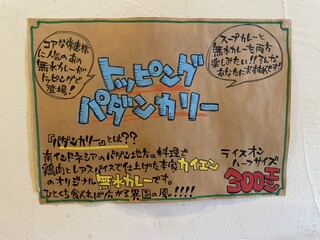 コアな常連様
に人気のあの
無水カレーが
トッピングで
登場！
スープカレーと
無水カレーを両方
楽しみたい!!そんな
あなたにおすすめです!
トッピング
パダンカリー
『パダンカリー』とは??
南インドネシアのパダン地方の料理で
鶏肉とレアスパイスで仕上げた本家カイエン
のオリジナル無水カレーです。
ひとくち食べれば広がる異国の風!!!!
ライスオン
ハーフサイズ
300王